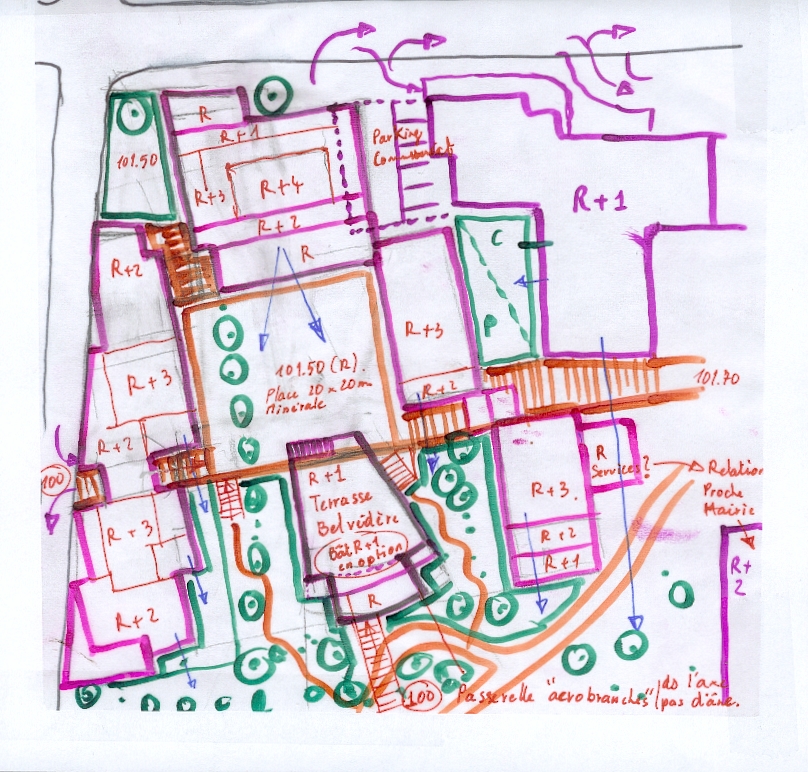 R
R+1
101.50
R+3
R+4
R+2
R
Parking
R+1
C
P
R+2
R+3
R+2
101.50 (R).
Place 20 x 20 m
Minérale
R+3
R+2
101.70
100
R+3
R+2
R+1
Terrasse
Belvédère
Bât R+1
en option
R
R+3.
R+2
R+1
R
Services?
Relation
Proche
Mairie
R+
2
100
Passerelle "aerobranches" ds l'axe
pas d'âne.